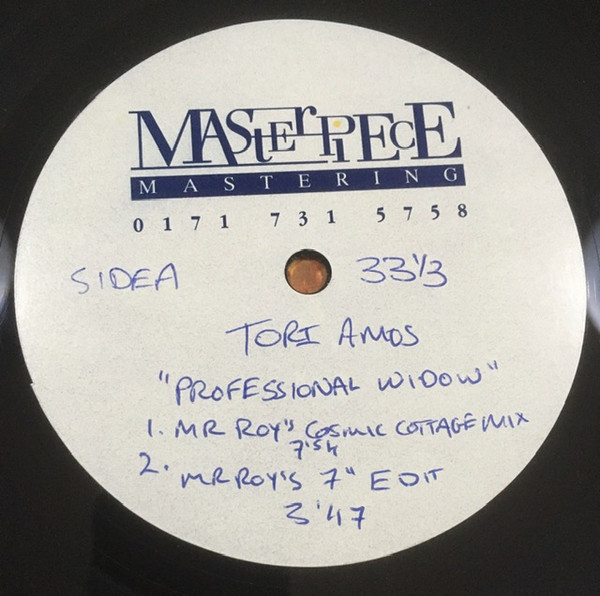 MASterPiEcE
MASTERING
0171 731 5758
SIDE A 33 1/3
TORI AMOS
"PROFESSIONAL WIDOW"
1. MR ROY'S COSMIC COTTAGE MIX
7'54
2. MR ROY'S 7" EDIT
3'47